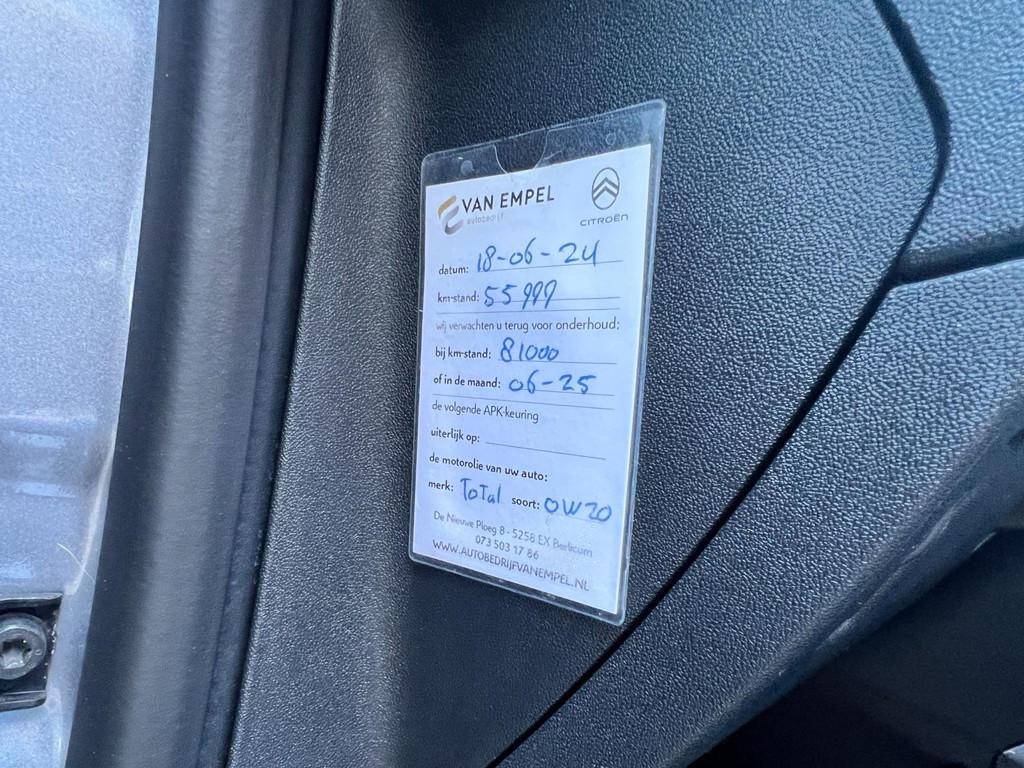 VAN EMPEL
autobedrijf
CITROËN
datum: 18-06-24
km-stand: 55999
wij verwachten u terug voor onderhoud:
bij km-stand: 81000
of in de maand: 06-25
de volgende APK-keuring
uiterlijk op:
de motorolie van uw auto:
merk: ToTal soort: 0W20
De Nieuwe Ploeg 8 - 5258 EX Berlicum
073 503 17 86
WWW.AUTOBEDRIJFVANEMPEL.NL